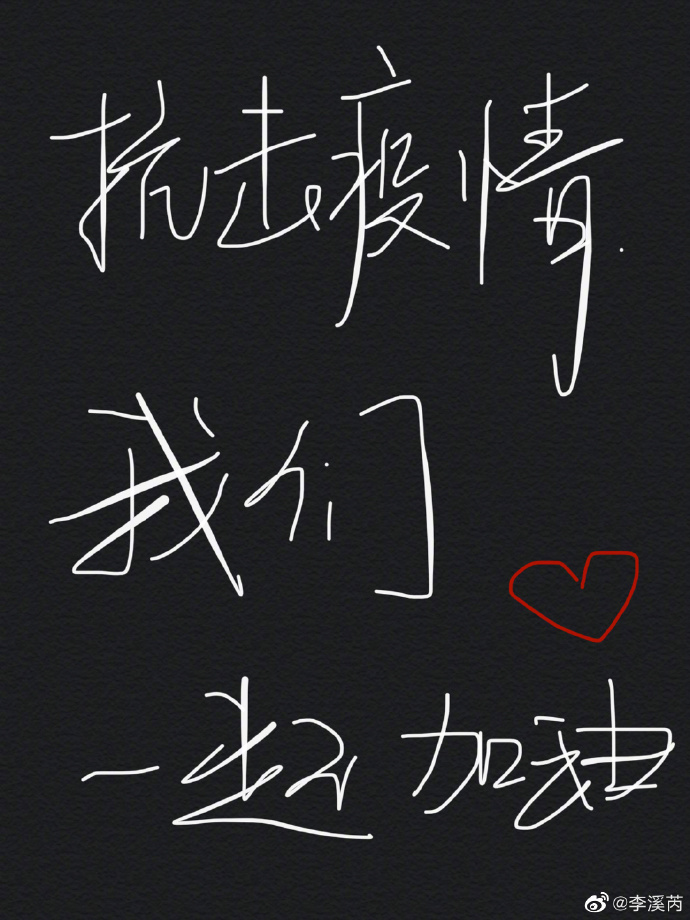 抗击疫情
我们
一起加油
@李溪芮